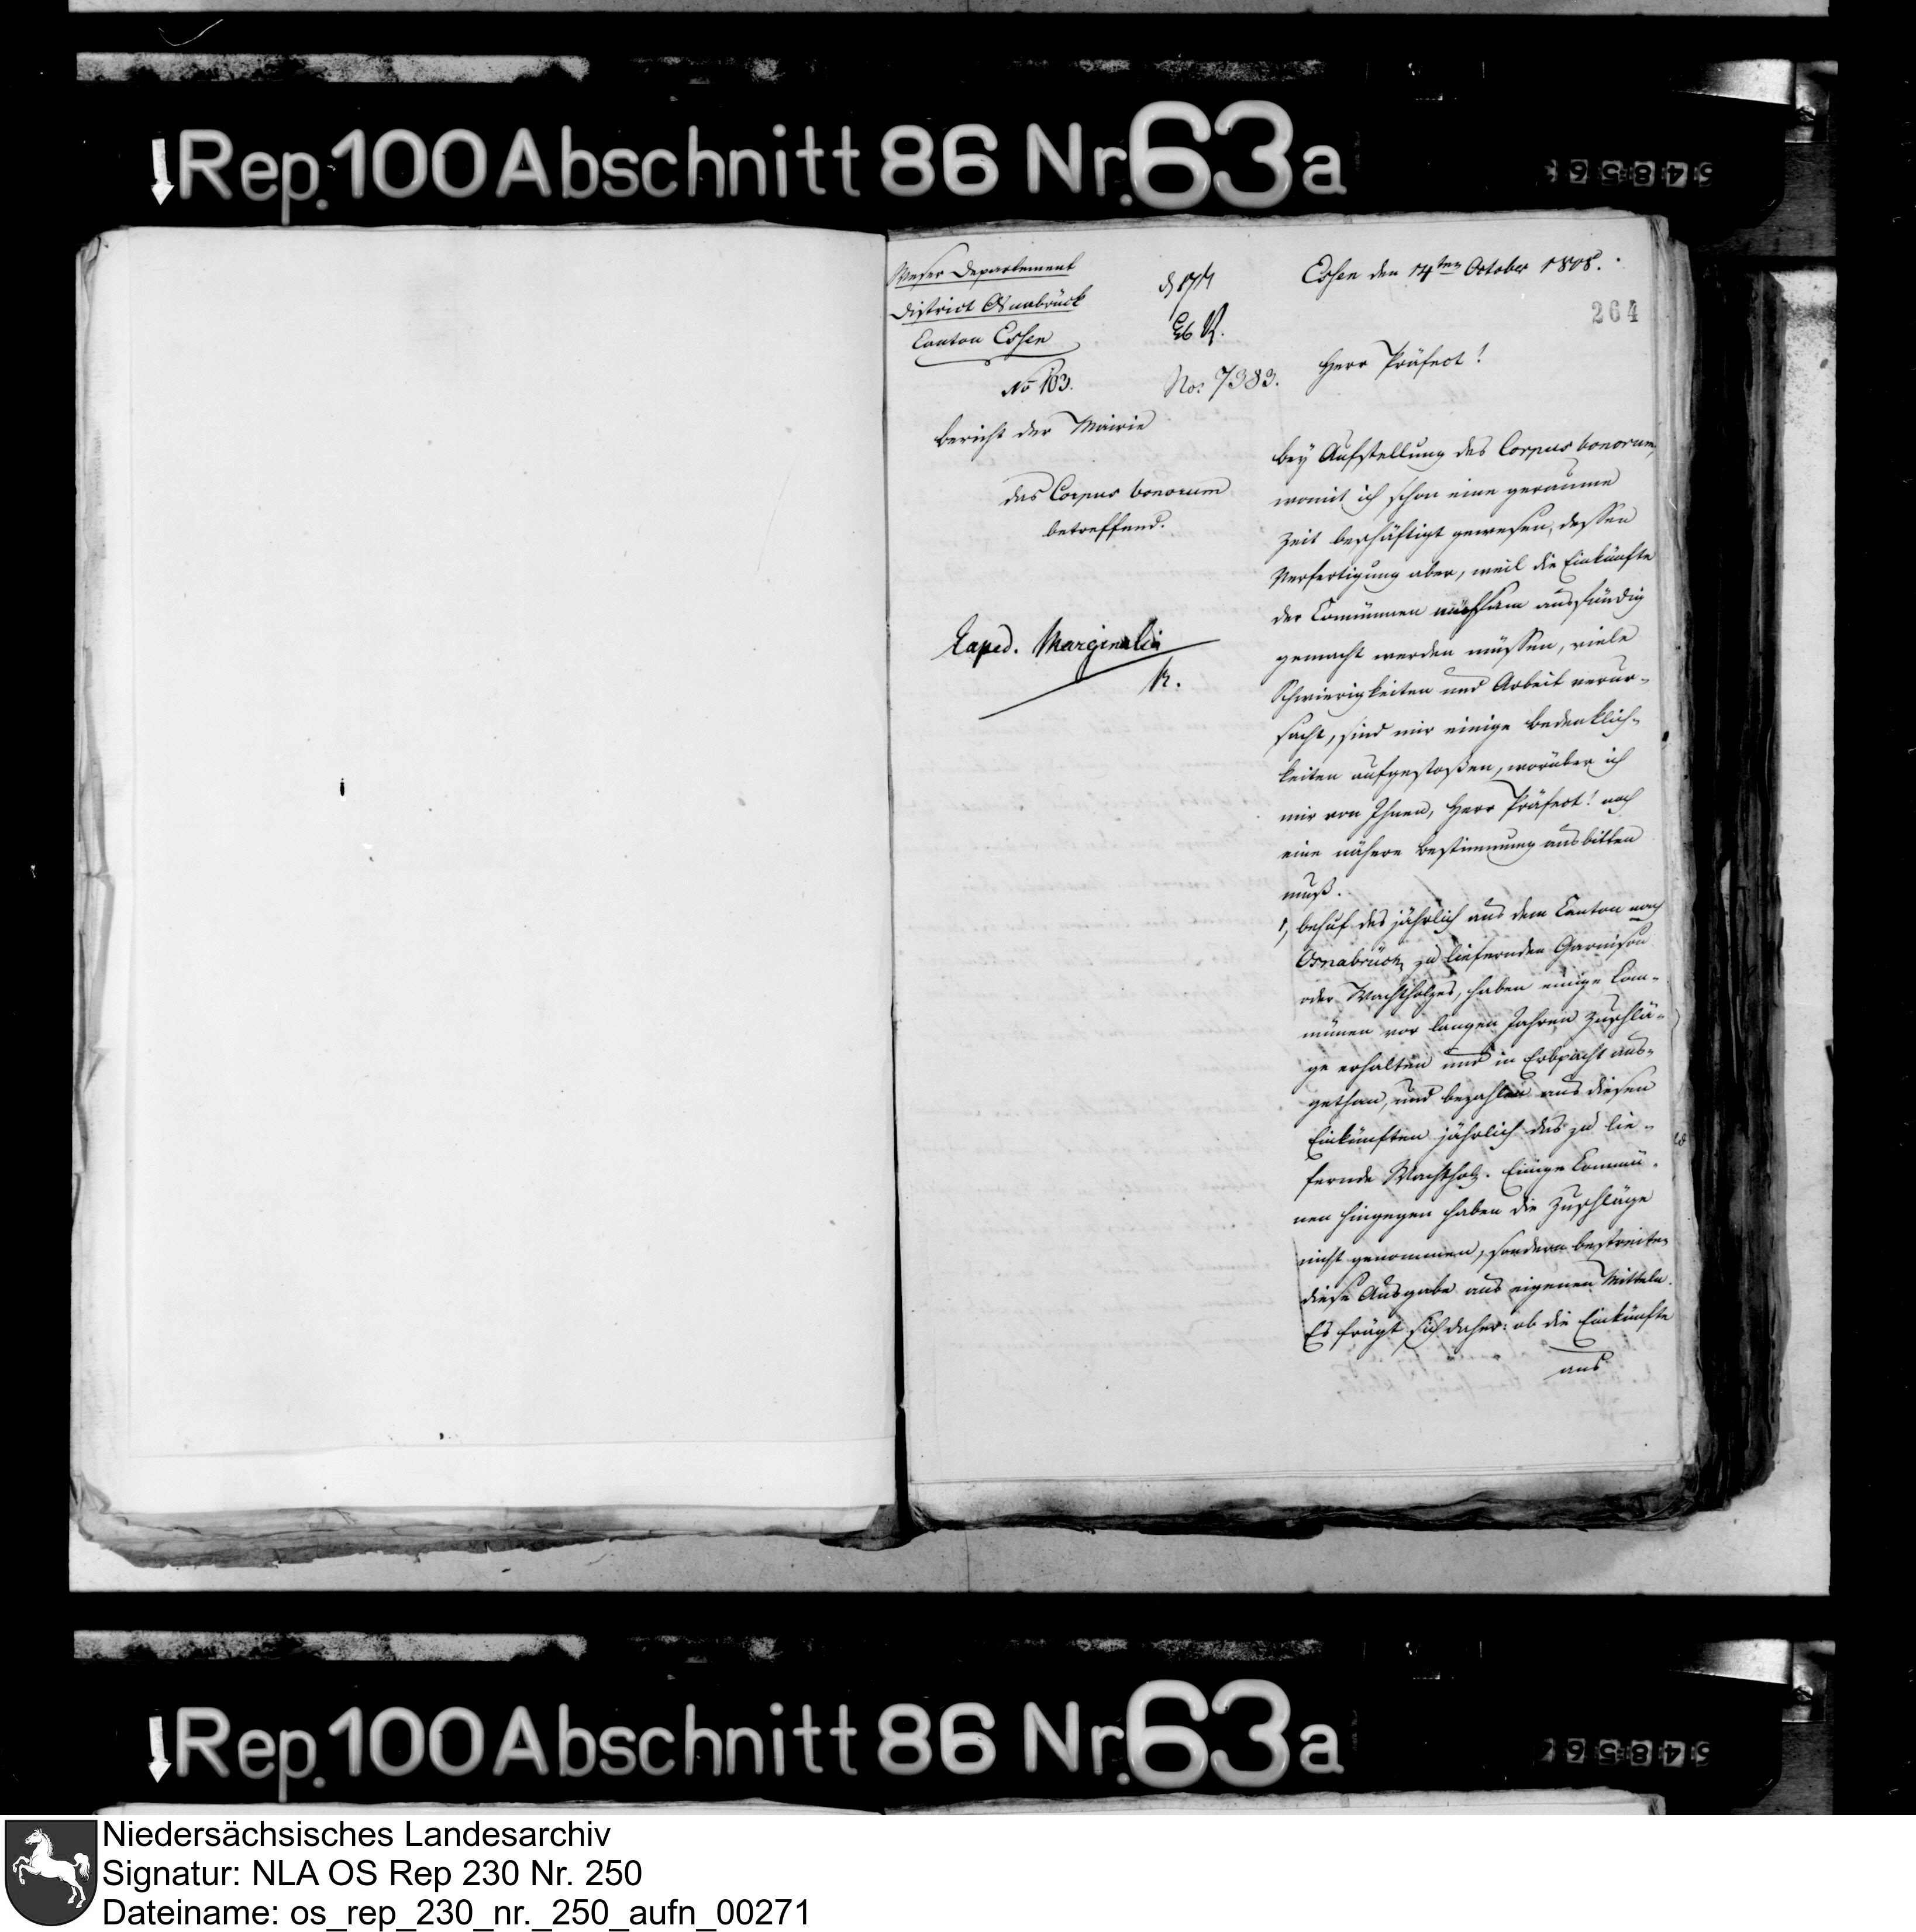 Rep. 100 Abschnitt 86 Nr. 63a
Weser Departement
District Osnabrück
Canton Essen
No 103.
Bericht der Mairie
das Corpus bonorum
betreffend.
Exped. Marginalia
No: 7383.
Essen den 14ten October 1808.
264
Herr Präfect!
bey Aufstellung des Corpus bonorum,
womit ich schon eine geraume
Zeit beschäftigt gewesen, dessen
Verfertigung aber, weil die Einkünfte
der Communen mühsam ausfündig
gemacht werden müssen, viele
Schwierigkeiten und Arbeit verur-
sacht, sind mir einige Bedenklich-
keiten aufgestoßen, worüber ich
mir von Ihnen, Herr Präfect! noch
eine nähere Bestimmung ausbitten
muß.
1, behuf des jährlich aus dem Canton nach
Osnabrück zu liefernden Garnison
oder Wachtholzes, haben einige Com-
münen vor langen Jahren Zuschlä-
ge erhalten und in Erbpacht aus-
gethan, und bezahlen aus diesen
Einkünften jährlich das zu lie-
fernde Wachtholz. Einige Commü-
nen hingegen haben die Zuschläge
nicht genommen, sondern bestreiten
diese Ausgabe aus eigenen Mitteln.
Es frägt sich daher: ob die Einkünfte
aus
Rep. 100 Abschnitt 86 Nr. 63a
Niedersächsisches Landesarchiv
Signatur: NLA OS Rep 230 Nr. 250
Dateiname: os_rep_230_nr._250_aufn_00271